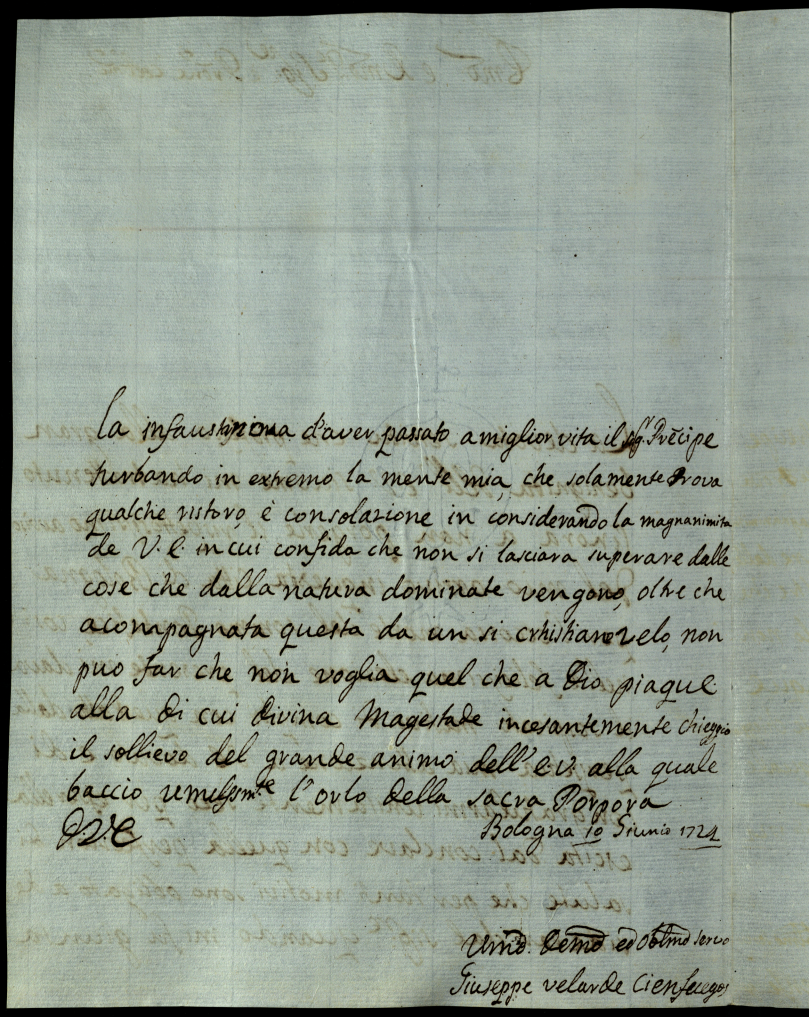 la infaustinova d'aver passato a miglior vita il sigr. Prēcipe
turbando in extremo la mente mia, che solamente Prova
qualche ristoro, è consolazione in considerando la magnanimita
de V. E. in cui confida che non si lasciara superare dalle
cose che dalla natura dominate vengono, oltre che
acompagnata questa da un si crhistiano zelo, non
puo far che non voglia quel che a Dio piaque
alla di cui divina Magestade incesantemente chieggio
il sollievo del grande animo dell' E.V. alla quale
baccio umilissmte l'orlo della sacra Porpora
D.V.E
Bologna 10 Giunio 1724
Umō. Demō ed Obbmō servo
Giuseppe velarde Cienfuegos